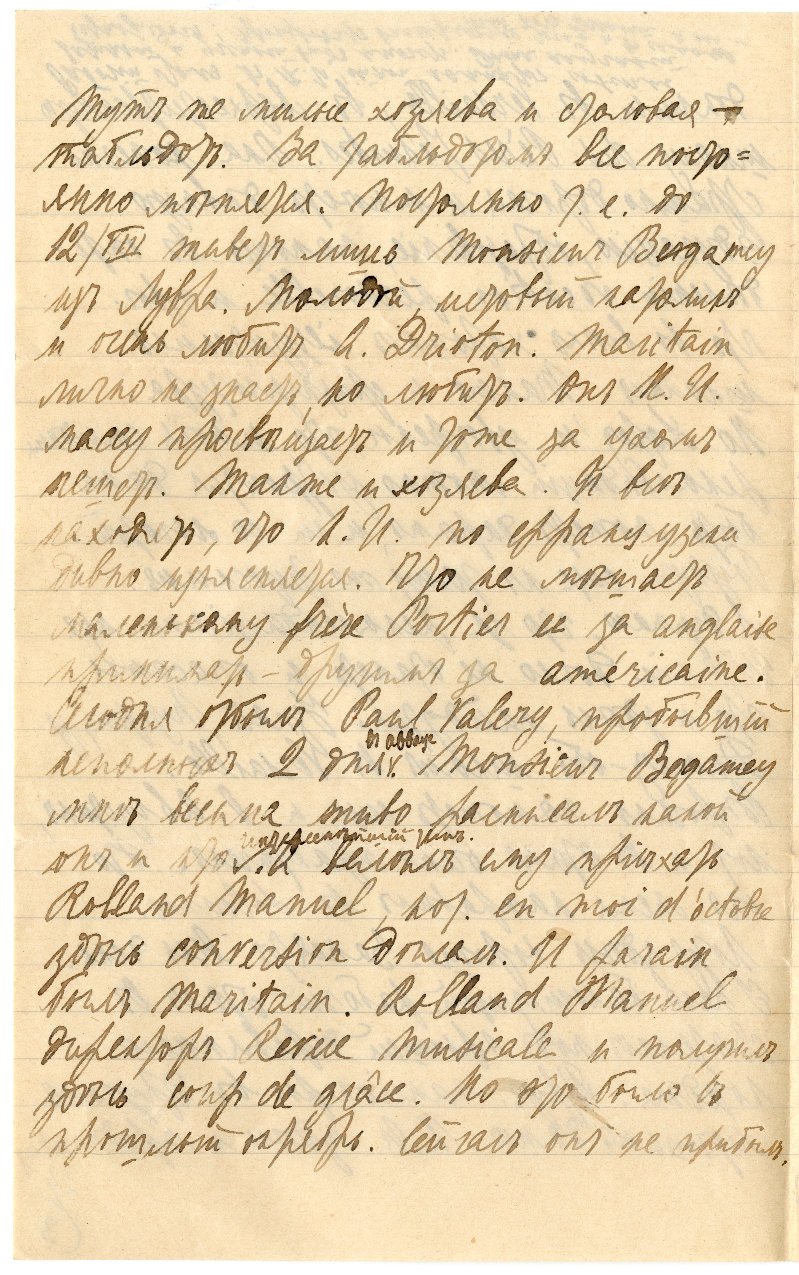 Тутъ же милые хозяева и столовая —
табльдотъ. За табльдотомъ все посто=
янно мѣняется. Постоянно т. е. до
12/VIII живетъ лишь Monsieur Bergamey
изъ Лувра. Молодой, истовый католикъ
и очень любитъ A. Drioton. Maritain
лично не знаетъ, но любитъ. Онъ К. И.
массу просвѣщаетъ и тоже за
. Также и хозяева. И всѣ
находятъ, что К. И. по французски
дивно изъясняется. Что не мѣшаетъ
маленькому frère Portier ее за anglaise
принимать — другимъ за américaine.
Сегодня отбылъ Paul Valery, пробывшій
неполныхъ 2 дня въ abbaye. Monsieur Bergamey
мнѣ весьма живо расписалъ какой
онъ и что интереснѣйшій типъ. велѣлъ ему пріѣхать
Rolland Manuel, кот. en moi d'octobre
здѣсь conversion дѣлалъ. И parain
былъ Maritain. Rolland Manuel
директоръ Revue Musicale и получилъ
здѣсь coup de grâce. Но это было въ
прошлый октябрь. Сейчасъ онъ не прибылъ.